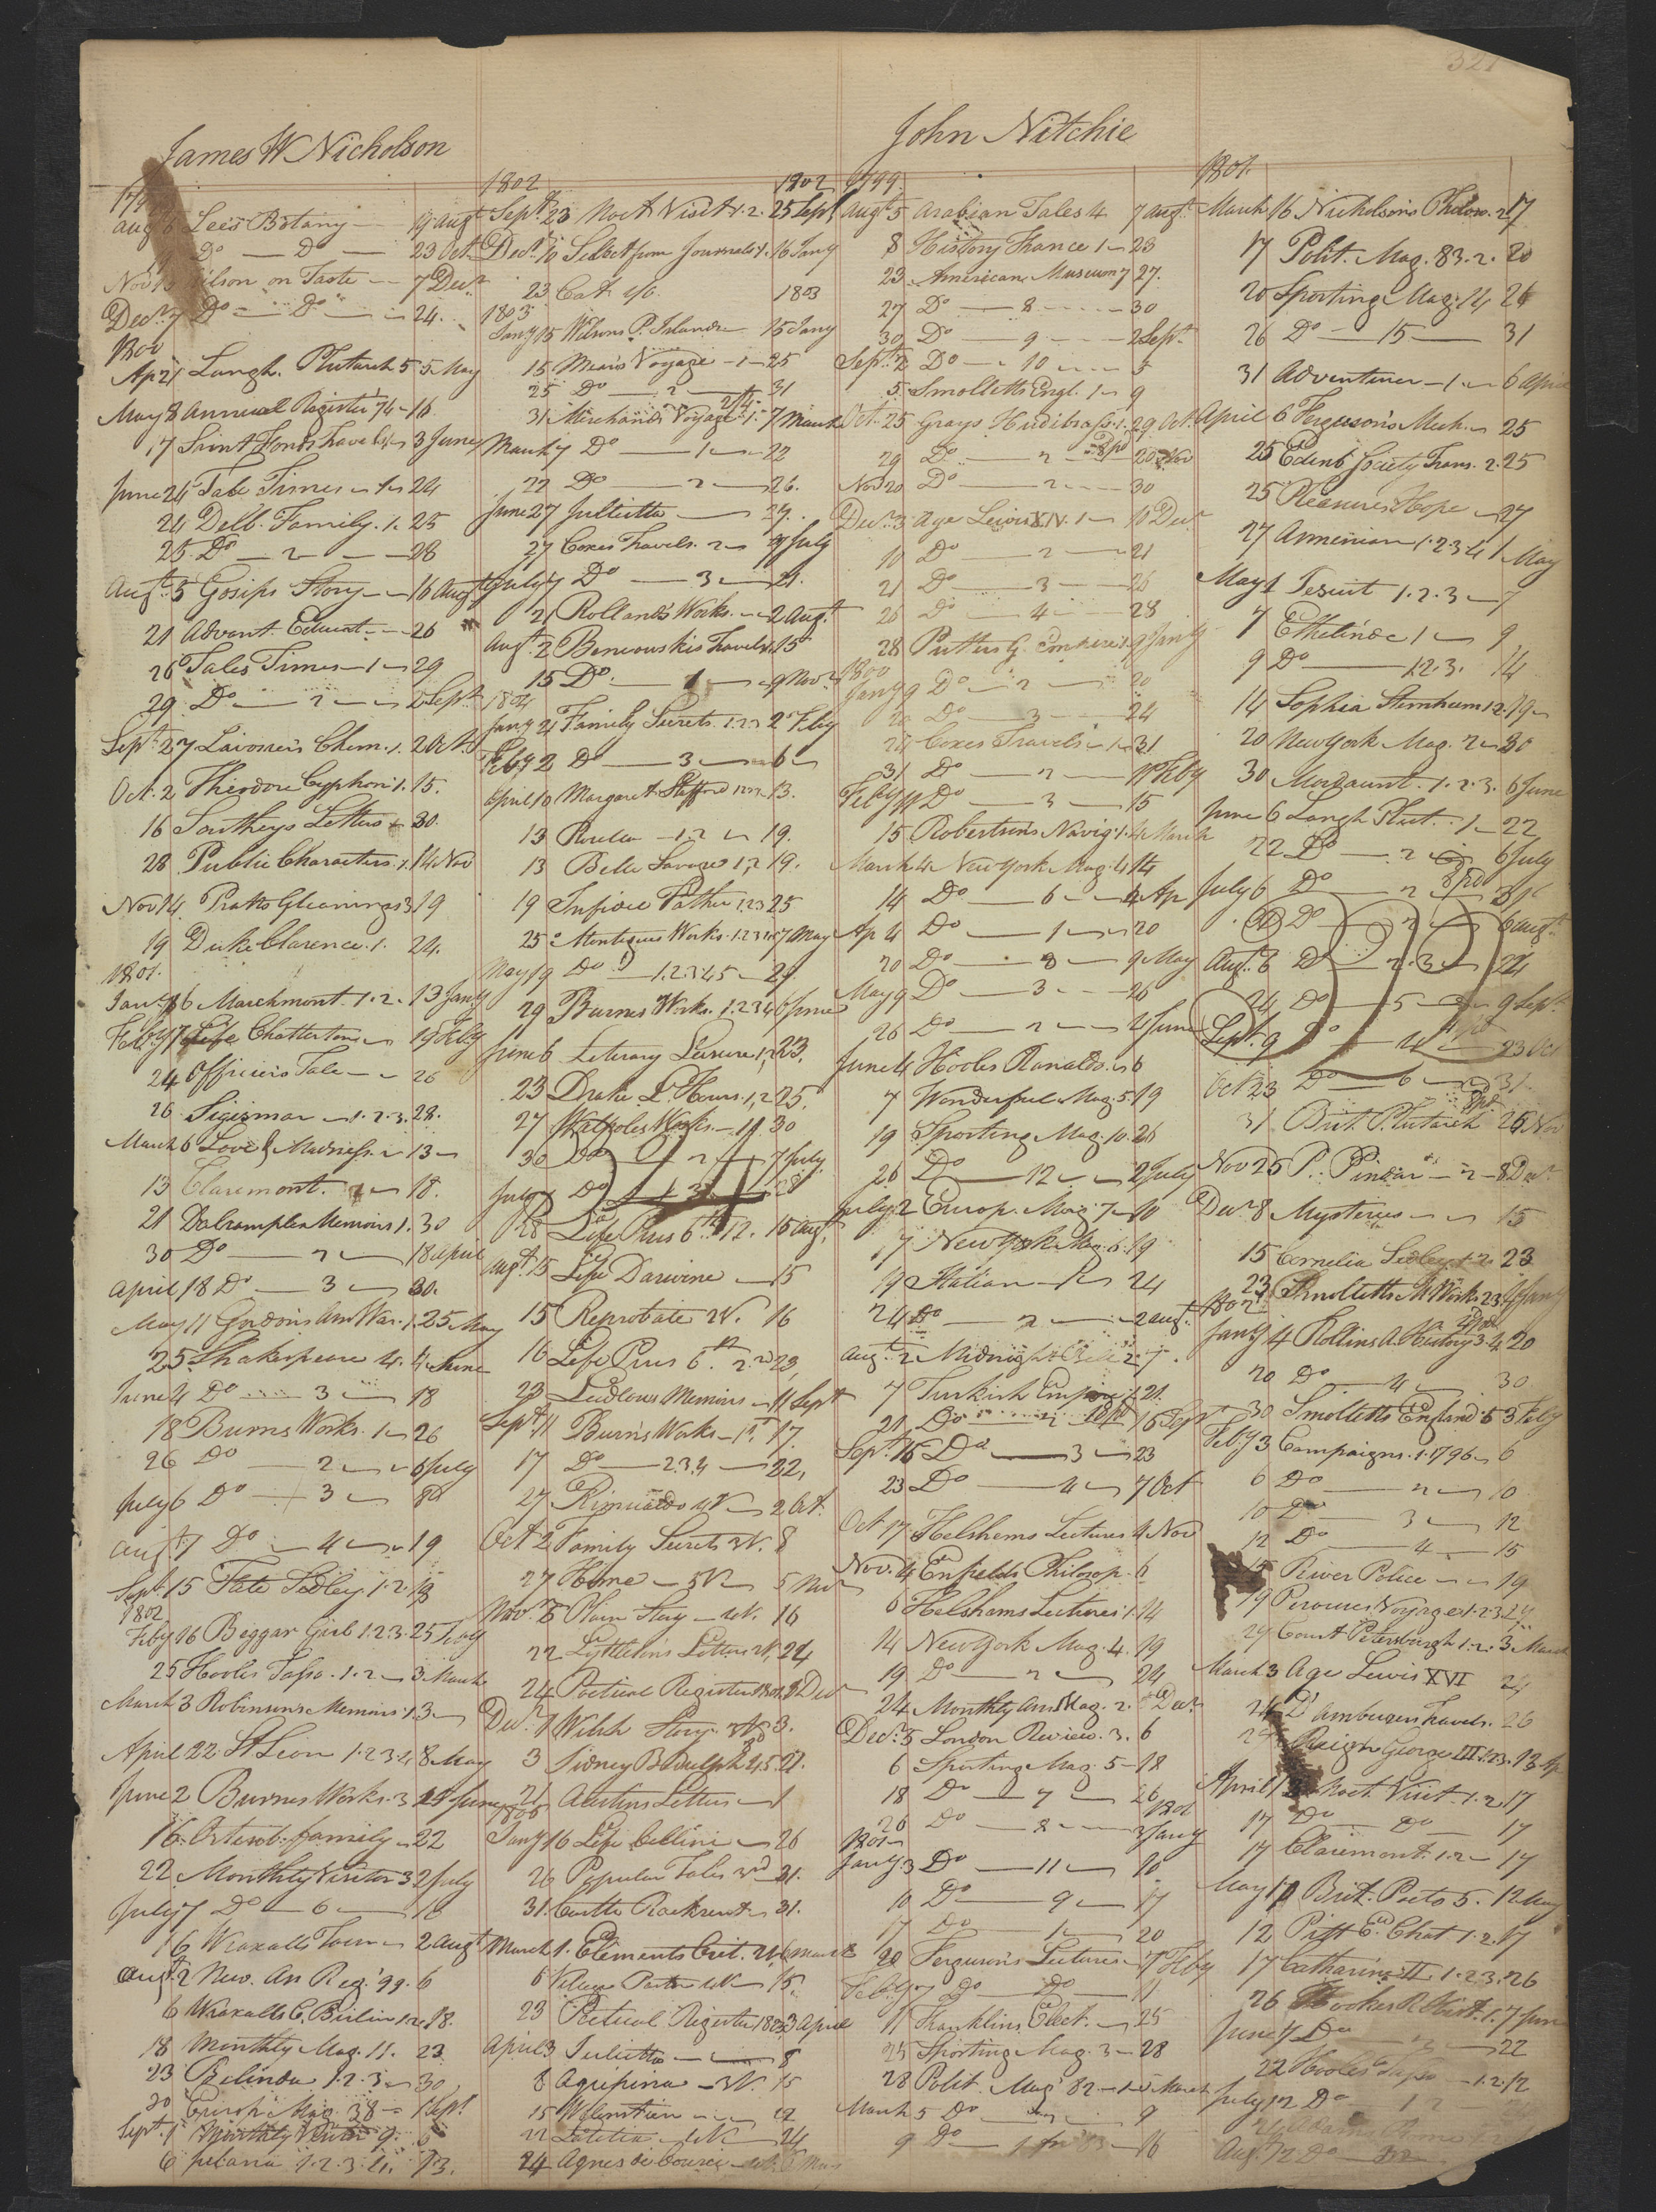 321
James W Nicholson
Augt 6 Lee's Botany — 19 Augt
Do — Do — 23 Oct
Nov 13 on Taste — 7 Decr
Decr 7 Do — Do — 24
1800
Ap 21 Langh. Plutarch 5 5 May
May 8 Annual Register 74 — 16
17 Saint Fonds Travels 1 3 June
June 21 Tale Times — 1 — 24
24 Delb. Family. 1. 25
25 Do — 2 — 28
Augt 5 Gosips Story — 16 Augt
21 Advant. Educat. — 26
26 Tales Times — 1 — 29
29 Do — 2 — 2 Sept
Sept 27 Lavosiers Chem. 1. 2 Oct
Oct. 2 Theodore Cyphon 1. 15.
16 Southeys Letters — 30.
28 Public Characters. 1. 14 Nov
Nov 14 Pratts Gleanings 3 19
19 Duke Clarence. 1. 24.
1801.
Jany 6 Marchmont. 1. 2. 13 Jany
Feby 17 Life Chatterton — 19 Feby
24 Officers Tale — 26
26 Sigismar — 1. 2. 3. 28.
March 6 Love & Madness. — 13 —
13 Claremont. — 18.
21 Dalrymples Memoirs 1. 30
30 Do — 2 — 18 April
April 18 Do — 3 — 30.
May 11 Gordons Am War. 1. 25 May
25 Shakespeare 4. 4 June
June 4 Do — 3 — 18
18 Burns Works. 1 — 26
26 Do — 2 — 6 July
July 6 Do — 3 —
Augt 7 Do — 4 — 19
Sept 15 Fate Sedley 1. 2. 18
1802
Feby 16 Beggar Girl 1. 2. 3. 25 Feby
25 Hooles Tasso. 1. 2 — 3 March
March 3 Robinsons Memoirs 1. 3 —
April 22 St Leon 1. 2. 3. 4 8 May
June 2 Burns Works. 3 June
16 Ortenb. family — 22
22 Monthly Visitor 3 2 July
July 7 Do — 6 — 16
16 Wraxalls Tour — 2 Augt
Augt 2 New. An Reg. 99. 6
6 Wraxalls C. Berlin 1. 2. 18.
18 Monthly Mag. 11. 23.
23 Belinda 1. 2. 3 — 30
30 Europ. Mag. 38 — 1 Sept
Sept. 1 Monthly Visitor 9. 6
6 1. 2. 3. 4. 13.
1802
1802
Sept 23 Noct Visit 1. 2. 25 Sept
Decr 10 Select from Journals 1. 16 Jany
23 Cat 1803
1803
Jany 15 Wilsons P. Islands — 15 Jany
15 Mears Voyage — 1 — 25
25 Do — 2 — 31
31 Voyage 1. 7 March
March 7 Do — 1 — 22
22 Do — 2 — 26.
June 27 Julietta — 29.
27 Coxes Travels. 2 — 7 July
July 7 Do — 3 — 21.
21 Rollands Works. — 2 Augt
Augt. 2 Beniowskis Travels 1. 15
15 Do. — 1 — 9 Novr
1804
Jany 21 Family Secrets. 1. 2. 3 2 Feby
Feby 2 Do — 3 — 6 —
April 10 Margaret Stafford 13.
13 — 1. 2 — 19.
13 Belle Savage 1. 2 19.
19 Infidel Father 1. 2. 3 25
25 Montagues Works. 1. 2. 3. 4. 7 May
May 19 Do — 1. 2. 3. 4. 5 — 29
29 Burns Works. 1. 2. 3. 4 6 June
June 6 Literary Leisure 1, 2 23.
23 Drake L. Hours. 1, 2 25.
27 Walpoles Works. — 1. 30
30 Do — 2 — 7 July
July 7 Do — 3 — 28
28 Life Pius 6th 12. 15 Augt.
Augt 15 Life Darwine — 15
15 Reprobate 2 V. 16
16 Life Pius 6th 2. 23,
23 Ludlows Memoirs — 11 Sept
Sept 11 Burns Works — 1st. 17.
17 Do — 2. 3. 4 — 22,
27 Rinualdo 4 V — 2 Oct.
Oct 2 Family Secrets 3 V. 8
27 Home — 5 V — 5 Nov
Novr 6 Plain Story — 4 V. 16
22 Lyttletons Letters 2 V. 24
24 Poetical Register 1801. 1 Decr
Decr 1 Welch Story. 3 V. 3.
3 Sidney Bidulph 4. 5. 21.
21 Austins Letters — 1
1805
Jany 16 Life Cellini — 26
26 Popular Tales 3rd — 31.
31 Castle Rackrent — 31.
March 1. Elements Crit. 2 V. 6 March
6 Village Pastor 4 V — 15.
23 Poetical Register 1802 3 April
April 3 Julietta — 8
8 Agripina — 3 V. 15
15 Walenstein — 22
22 Letetia — 4 V. — 24
24 Agnes de Courci — 4 V.
John Nitchie
1799.
Augt 5 Arabian Tales 4 7 Augt.
8 History France 1 — 23
23 American Museum 7 27.
27 Do — 8 — 30
30 Do — 9 — 2 Sept
Sept 2 Do — 10 — 5
5 Smolletts Engl. 1 — 9
Oct. 25 Grays Hudibras 1. 29 Oct.
29 Do — 2 — 20 Nov
Nov 20 Do — 2 — 30
Decr 3 Age Lewis XIV. 1 — 10 Decr
10 Do — 2 — 21
21 Do — 3 — 26
26 Do — 4 — 28
28 Putters G. Empire 1. 9 Jany
1800
Jany 9 Do — 2 — 20
20 Do — 3 — 24
24 Coxes Travels — 1 — 31
31 Do — 2 — 11 Feby
Feby 11 Do — 3 — 15
15 Robertsons Navig. 1. 4 March
March 4 New York Mag. 4 14
14 Do — 6 — 4 Ap
Ap 4 Do — 1 — 20
20 Do — 8 — 9 May
May 9 Do — 3 — 26
26 Do — 2 — 4 June
June 4 Hooles Rinaldo. — 6
7 Wonderful Mag. 5. 19
19 Sporting Mag. 10. 26
26 Do — 12 — 2 July
July 2 Europ. Mag. 7 — 10
17 New York Mag. 6. 19
19 Italian — 1 — 24
24 Do — 2 — 2 Augt.
Augt. 2 Midnight Bell 2. 7.
7 Turkish Empire 1. 21.
21 Do — 2 — 16 Sept
Sept. 16 Do — 3 — 23
23 Do — 4 — 7 Oct
Oct 17 Helshams Lectures 4 Nov
Nov. 4 Enfields Philosop. 6
6 Helshams Lectures 1. 14
14 New York Mag. 4. 19
19 Do — 2 — 24
24 Monthly Am Mag. 2. 5 Decr
Decr 5 London Review. 3. 6
6 Sporting Mag. 5 — 18
18 Do — 7 — 26
1801
26 Do — 8 — 3 Jany
1801
Jany 3 Do — 11 — 10
10 Do — 9 — 17
17 Do — 1 — 20
20 Fergusons Lectures — 7 Feby
Feby 7 Do — Do — 11
11 Franklins Elect. — 25
25 Sporting Mag. 3 — 28
28 Polit. Mag. 82 — 1 — 5 March
March 5 Do — 9
9 Do — 16
1801.
March 16 Nicholsons Philos. 2. 17
17 Polit. Mag. 83. 2. 20
20 Sporting Mag. 14 26
26 Do — 15 — 31
31 Adventurer — 1. — 6 April
April 6 Fergusons Mech. — 25
25 Edinb Society Trans. 2. 25
25 Pleasures Hope — 27
27 Armenian 1. 2. 3. 4 1 May
May 1 Jesuit 1. 2. 3 — 7
7 Ethelinde 1 — 9
9 Do — 1. 2. 3. 14
14 Sophia Sternheim 1. 2. 19 —
20 New York Mag. 2 — 30
30 Mordaunt. 1. 2. 3. 6 June
June 6 Langh Plut. — 1 — 22
22 Do — 2 — 6 July
July 6 Do — 2
Do — 2 — 6 Augt
Augt. 6 Do — 2. 3 — 24
24 Do — 5 — 9 Sept
Sept. 9 Do — 4 — 23 Oct
Oct 23 Do — 6 — 31
31 Brit. Plutarch 25 Nov
Nov 25 P. Pindar — 2 — 8 Decr
Decr 8 Mysteries — 15
15 Cornelia Sedley 1. 2. 23
23 Smolletts M. Works. 2. 3. 4 Jany
1802
Jany 4 Rollins A. History 3. 4 20
20 Do — 4 — 30
30 Smolletts England 5 3 Feby
Feby 3 Campaigns. 1. 1796 — 6
6 Do — 2 — 10
10 Do — 3 — 12
12 Do — 4 — 15
15 River Police — 19
19 Perouses Voyage 1. 2. 3.
Court Petersburgh 1. 2. 3 March
March 3 Age Lewis XVI 24
24 D'ambergers Travels. 26
Reign George III 1. 2. 3. 13 Ap
April 13 Noct. Visit. 1. 2. 17
17 Do — Do — 17
17 Claremont. 1. 2 — 17
May 10 Brit. Poets 5. 12 May
12 Pitt E. Chat 1. 2. 17
17 Catharine II. 1. 2. 3. 26
26 Hookes R. Hist. 1. 7 June
June 7 Do — 22
22 Hooles Tasso — 1. 2. 12
July 12 Do — 1 2
Augt. 12 Do